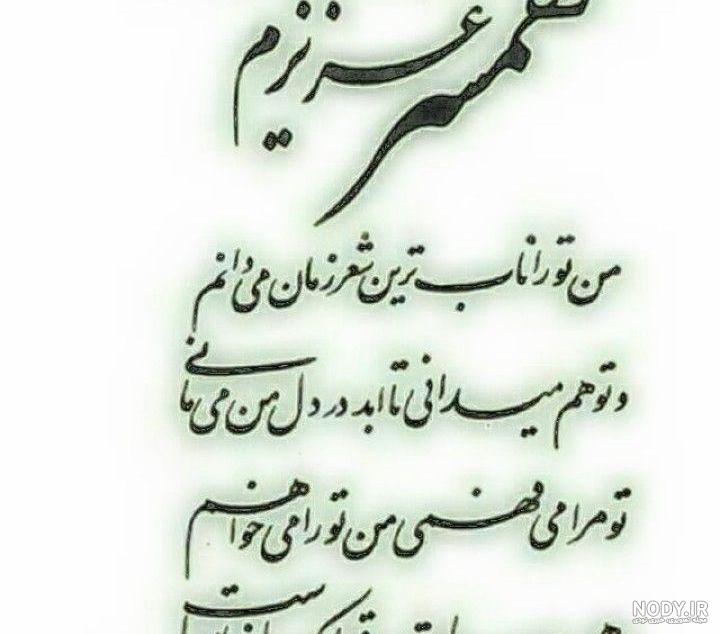 همسر عزیزم
من تو را ناب ترین شعر زمان می دانم
و تو هم میدانی تا ابد در دل من می مانی
تو مرا می فهمی من تو را می خواهم
NODY.IR